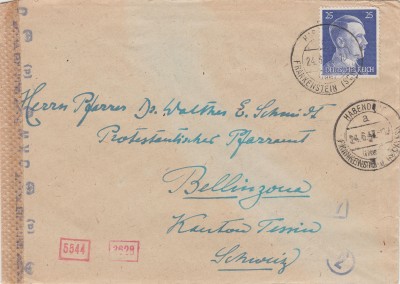 25 25
DEUTSCHES REICH
FRANKENSTEIN
HABEND
a
24.6.43
Herrn Pfarrer Dr. Walther E. Schmidt
Protestantisches Pfarramt
Bellinzona
Kanton Tessin
Schweiz
5544
2628
1
2